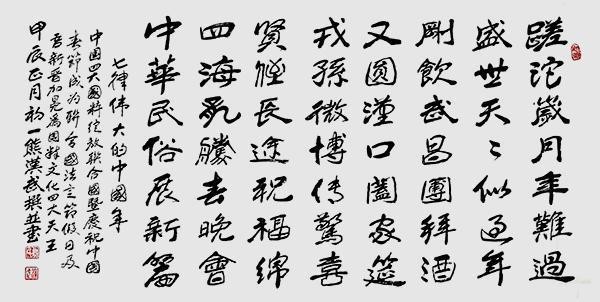 蹉沱歲月年難過
盛世天〻似過年
剛飲武昌團拜酒
又圓漢口闔家筵
戎孫微博傳驚喜
賢侄長途祝福綿
四海騰去晚會
中華民俗展新篇
七律偉大的中國年
中國四大國粹綻放聯合國暨慶祝中國
春節成為聯合國法定節假日及
吾新晉加冕為國粹文化四大天王
甲辰正月初一熊漢武撰並書